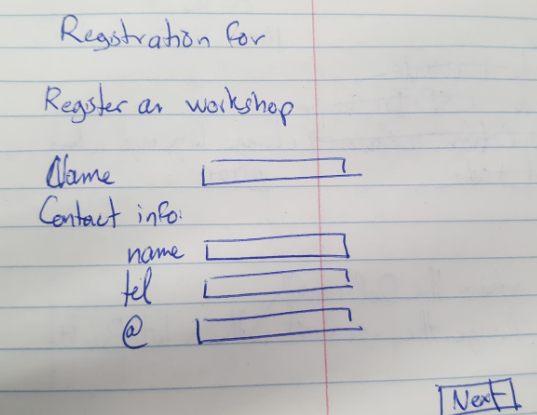 Registration for
Register as workshop
Name
Contact info:
name
tel
@
Next